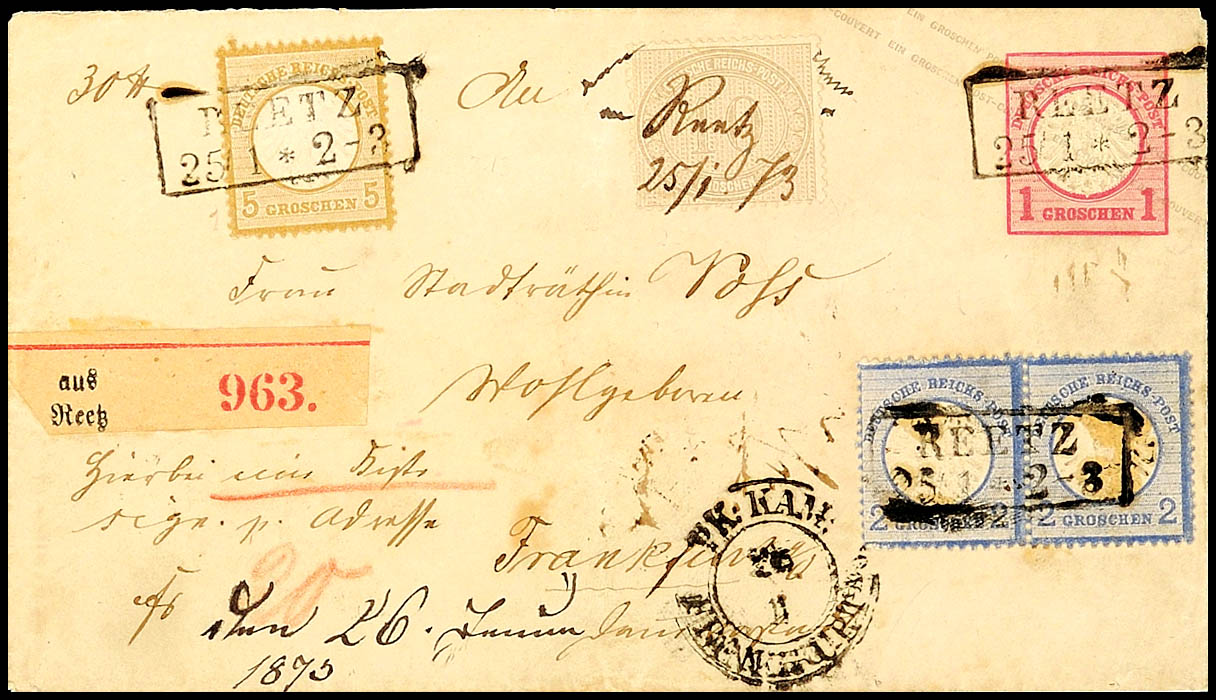 30 ℔
DEUTSCHE REICHS-POST
REETZ
25 1 * 2-3
5 GROSCHEN 5
An
DEUTSCHE REICHS-POST
10
GROSCHEN
Reetz
25/1 73
COUVERT EIN GROSCHEN
DEUTSCHE REICHS-POST
REETZ
25 1 * 2-3
1 GROSCHEN 1
Frau Stadträthin Vohs
Wohlgeboren
aus
Reetz
963.
DEUTSCHE REICHS-POST DEUTSCHE REICHS-POST
REETZ
25 1 * 2-3
2 GROSCHEN 2 2 GROSCHEN 2
Hierbei eine Kiste
sign. p. Adresse
Frankfurt
20
PK. KAM.
26
1
den 26. Januar
1873